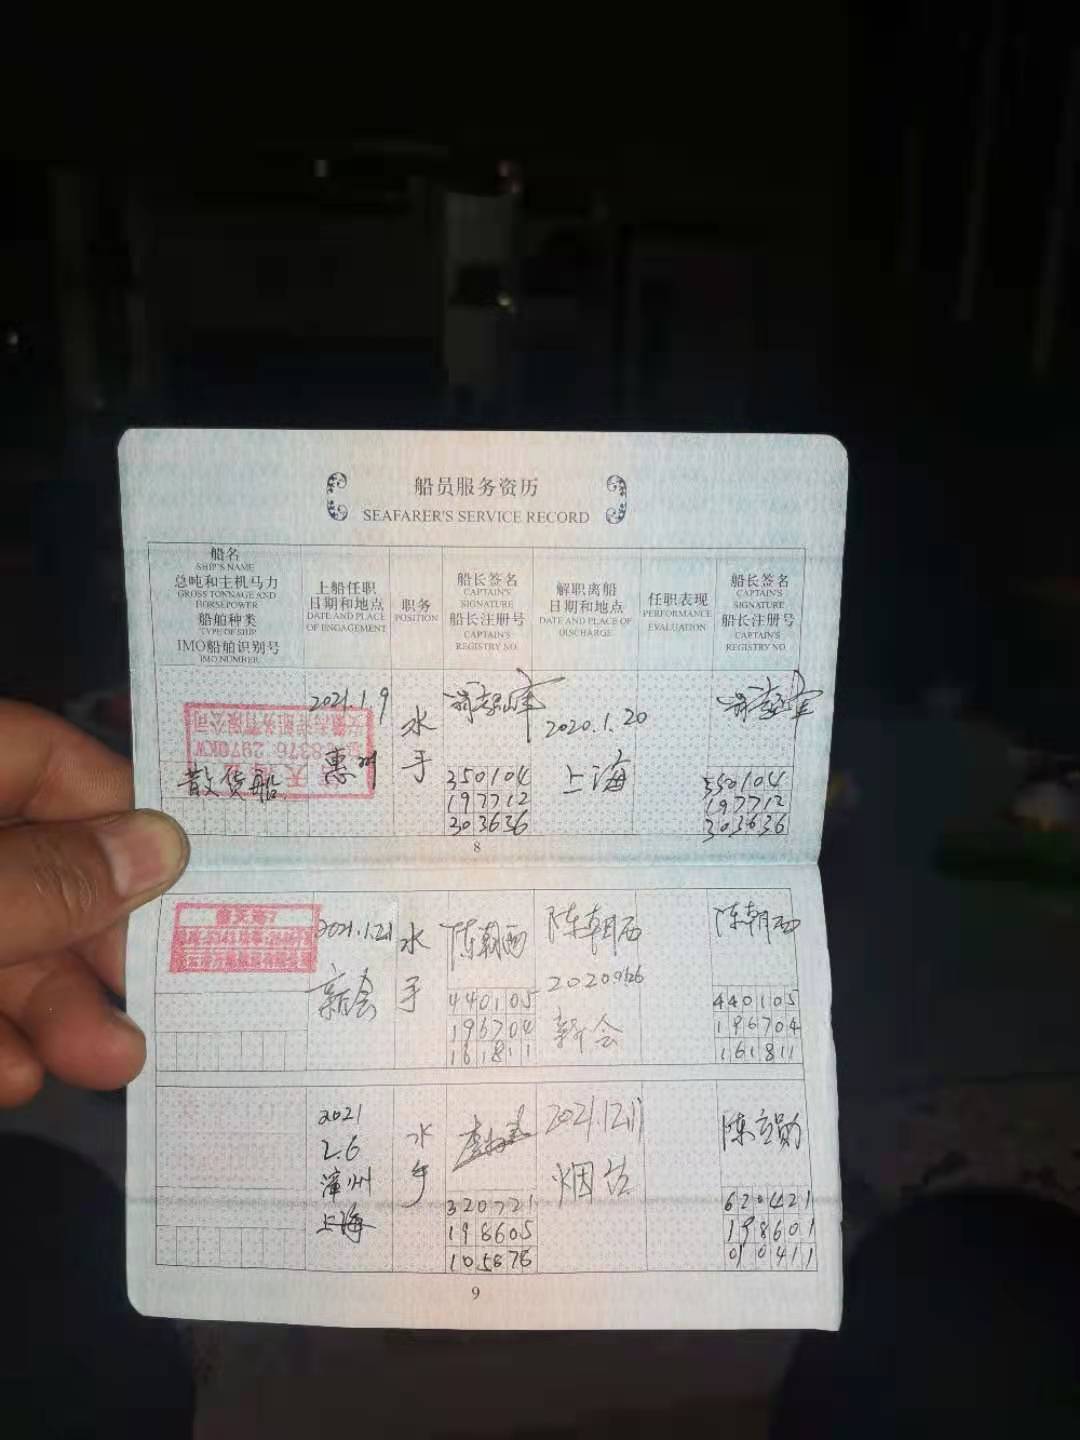 船员服务资历
SEAFARER'S SERVICE RECORD
船名
SHIP'S NAME
总吨和主机马力
GROSS TONNAGE AND
HORSEPOWER
船舶种类
TYPE OF SHIP
IMO船舶识别号
IMO NUMBER
上船任职
日期和地点
DATE AND PLACE
OF ENGAGEMENT
职务
POSITION
船长签名
CAPTAIN'S
SIGNATURE
船长注册号
CAPTAIN'S
REGISTRY NO.
解职离船
日期和地点
DATE AND PLACE OF
DISCHARGE
任职表现
PERFORMANCE
EVALUATION
船长签名
CAPTAIN'S
SIGNATURE
船长注册号
CAPTAIN'S
REGISTRY NO.
8376 2970KW
散货船
2021.1.9
惠州
水
手
350104
197712
303636
2020.1.20
上海
350104
197712
303636
8
2021.1.21
新会
水
手
陈朝西
440105
196704
161811
陈朝西
2020
新会
陈朝西
440105
196704
161811
2021
2.6
漳州
上海
水
手
320721
198605
105876
2021.12.11
烟台
陈立勋
620421
198601
010411
9